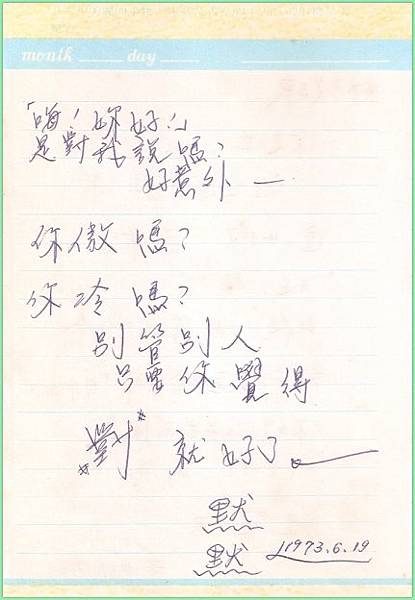 month day
「嗨！妳好！」
是對我說嗎？
好意外—
你傲嗎？
你冷嗎？
別管別人
只要你覺得
*對* 就好了。
默
默 1973.6.19